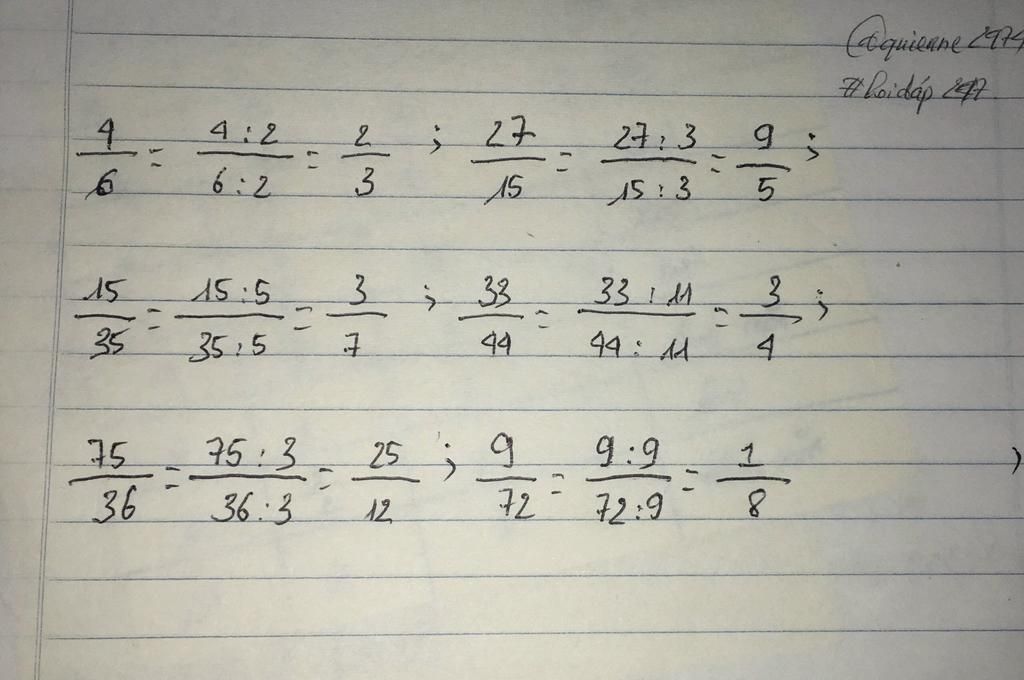 #hoidáp 247
4/6 = 4:2/6:2 = 2/3 ; 27/15 = 27:3/15:3 = 9/5 ;
15/35 = 15:5/35:5 = 3/7 ; 33/44 = 33:11/44:11 = 3/4 ;
75/36 = 75:3/36:3 = 25/12 ; 9/72 = 9:9/72:9 = 1/8